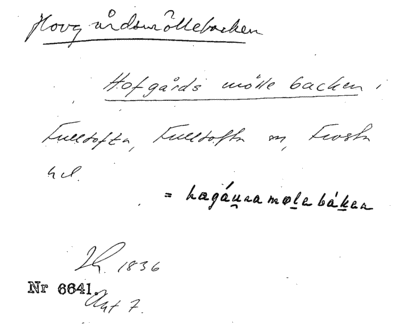 Hovgårdsmöllebacken
Hofgårds mölle backen i
Fulltofta, Fulltofta sn, Frosta
hd.
= hagáunamølebáken
1836
Nr 6641.
7.